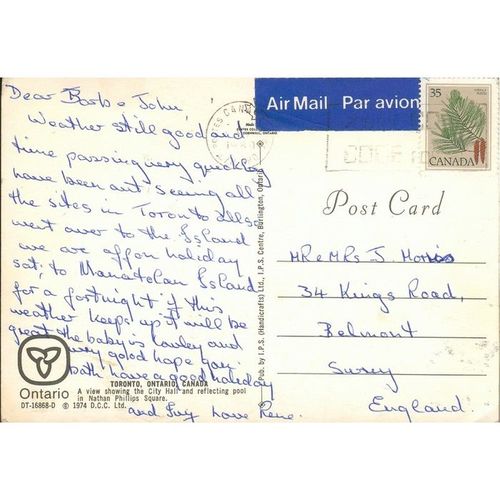 Dear Barb & John,
Weather still good and
time passing very quickley
have been out seeing all
the sites in Toronto allso
went over to the Island
we are off on holiday
sat, to Manatolan Island
for a fortnight if this
weather keeps up it will be
great the baby is lovley and
very good hope you
both have a good holiday
and love Rene.
Ontario
TORONTO, ONTARIO, CANADA
A view showing the City Hall and reflecting pool
in Nathan Phillips Square.
DT-16868-D © 1974 D.C.C. Ltd.
Pub. by I.P.S. (Handicrafts) Ltd., I.P.S. Centre, Burlington, Ontario
Air Mail Par avion
35
CANADA
CODE
Post Card
Mr & Mrs J Morris
34 Kings Road,
Belmont
Surry
England.